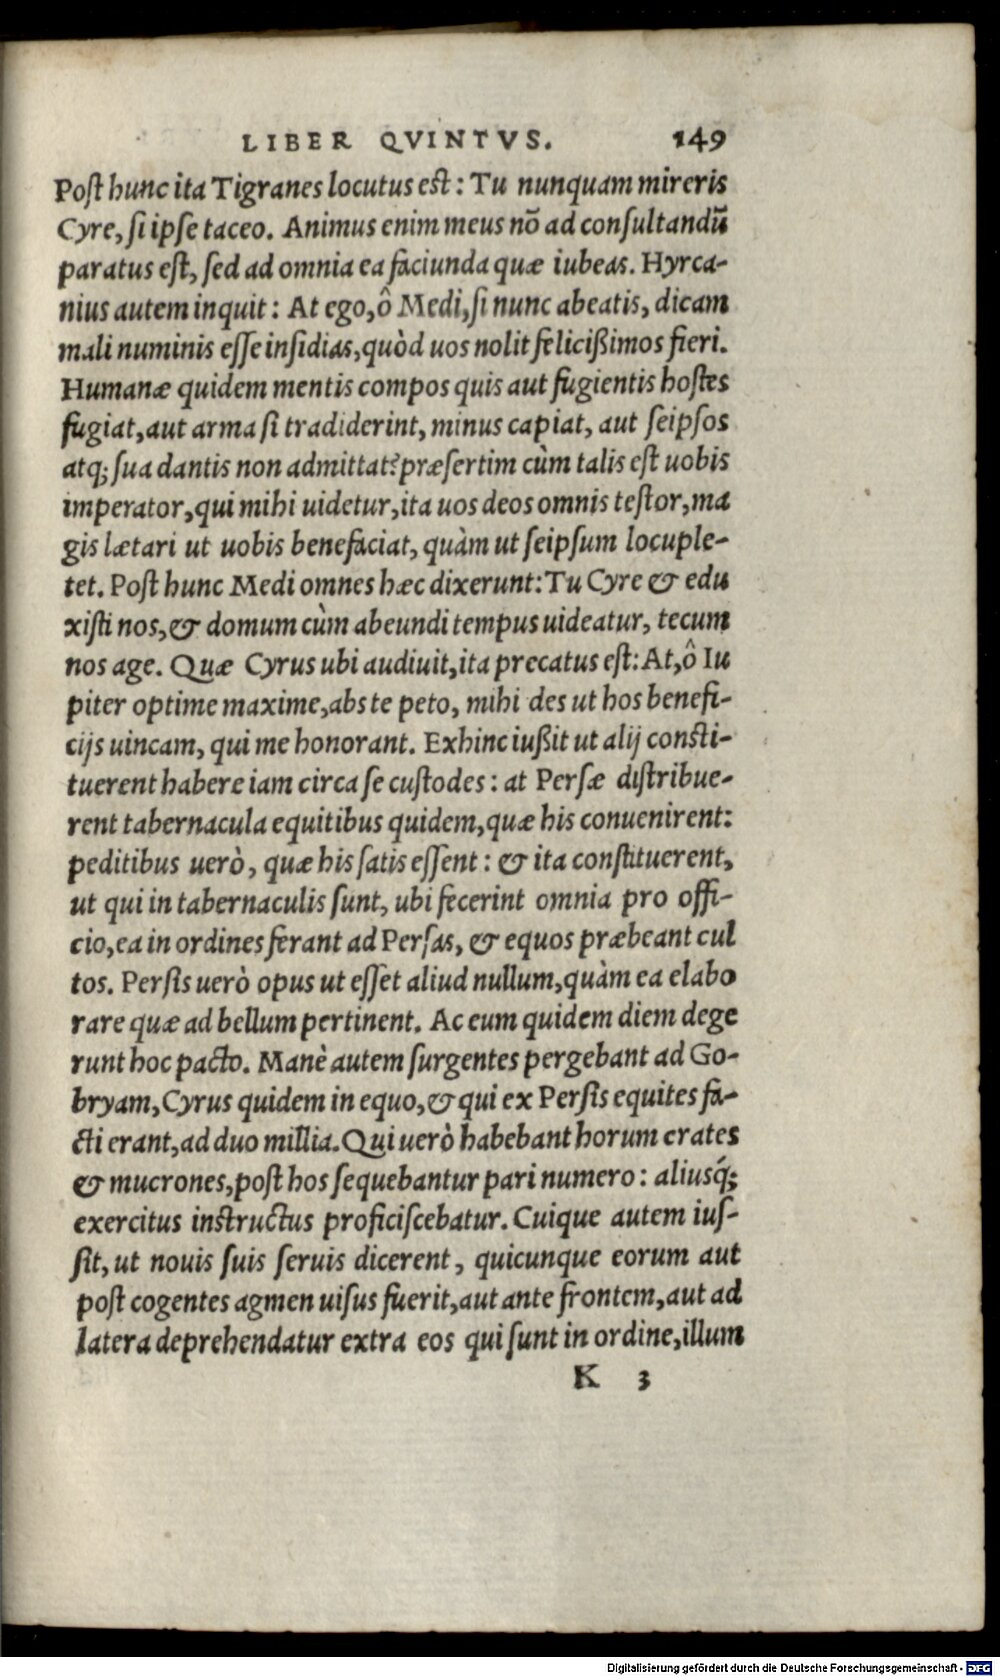 LIBER QVINTVS. 149
Poſt hunc ita Tigranes locutus eſt: Tu nunquam mireris
Cyre, ſi ipſe taceo. Animus enim meus nō ad conſultandū
paratus eſt, ſed ad omnia ea faciunda quæ iubeas. Hyrca-
nius autem inquit: At ego, ô Medi, ſi nunc abeatis, dicam
mali numinis eſſe inſidias, quòd uos nolit felicißimos fieri.
Humanæ quidem mentis compos quis aut fugientis hoſtes
fugiat, aut arma ſi tradiderint, minus capiat, aut ſeipſos
atq; ſua dantis non admittat? præſertim cùm talis eſt uobis
imperator, qui mihi uidetur, ita uos deos omnis teſtor, ma
gis lætari ut uobis benefaciat, quàm ut ſeipſum locuple-
tet. Poſt hunc Medi omnes hæc dixerunt: Tu Cyre & edu
xiſti nos, & domum cùm abeundi tempus uideatur, tecum
nos age. Quæ Cyrus ubi audiuit, ita precatus eſt: At, ô Iu
piter optime maxime, abs te peto, mihi des ut hos benefi-
cijs uincam, qui me honorant. Exhinc iußit ut alij conſti-
tuerent habere iam circa ſe cuſtodes: at Perſæ diſtribue-
rent tabernacula equitibus quidem, quæ his conuenirent:
peditibus uerò, quæ his ſatis eſſent: & ita conſtituerent,
ut qui in tabernaculis ſunt, ubi fecerint omnia pro offi-
cio, ea in ordines ferant ad Perſas, & equos præbeant cul
tos. Perſis uerò opus ut eſſet aliud nullum, quàm ea elabo
rare quæ ad bellum pertinent. Ac eum quidem diem dege
runt hoc pacto. Manè autem ſurgentes pergebant ad Go-
bryam, Cyrus quidem in equo, & qui ex Perſis equites fa-
cti erant, ad duo millia. Qui uerò habebant horum crates
& mucrones, poſt hos ſequebantur pari numero: aliusq́;
exercitus inſtructus proficiſcebatur. Cuique autem iuſ-
ſit, ut nouis ſuis ſeruis dicerent, quicunque eorum aut
poſt cogentes agmen uiſus fuerit, aut ante frontem, aut ad
latera deprehendatur extra eos qui ſunt in ordine, illum
K 3
Digitalisierung gefördert durch die Deutsche Forschungsgemeinschaft - DFG